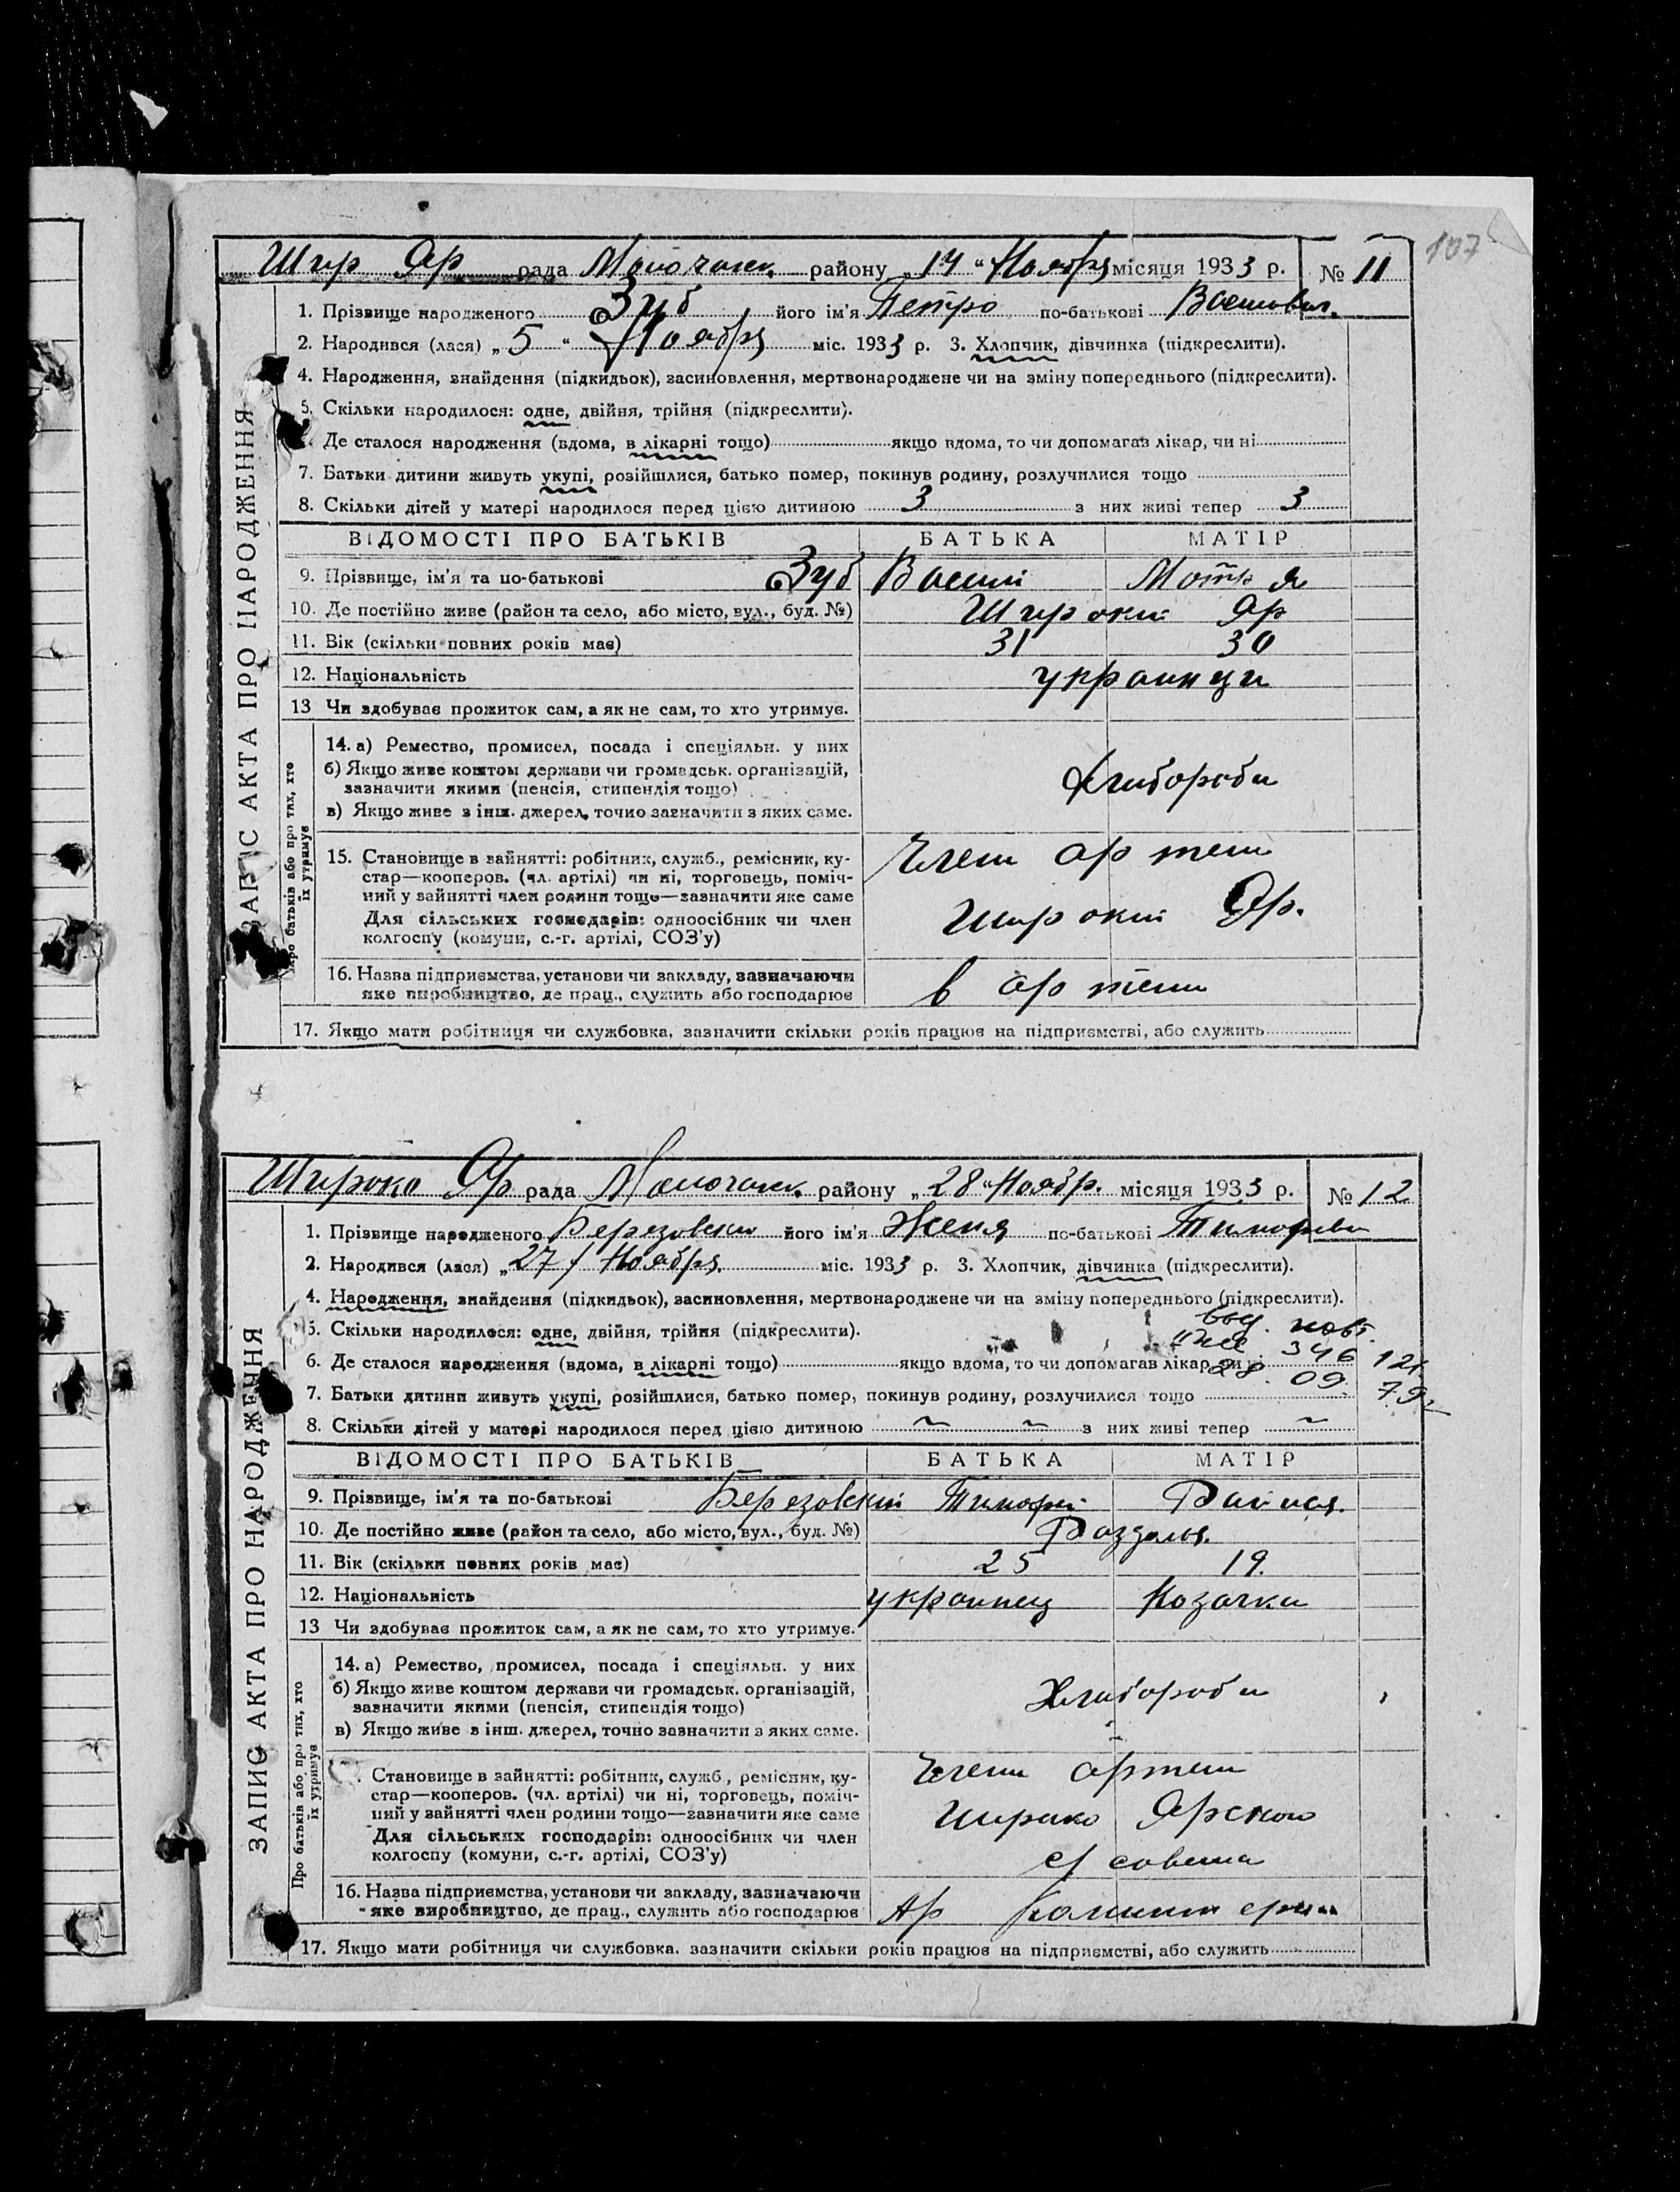 107
Шир Яр рада Молочанск. району „14“ Ноябрь місяця 1933 р. № 11
ЗАПИС АКТА ПРО НАРОДЖЕННЯ
1. Прізвище народженого Зуб його ім'я Петро по-батькові
2. Народився (лася) „5“ Ноябрь міс. 1933 р. 3. Хлопчик, дівчинка (підкреслити).
4. Народження, знайдення (підкидьок), засиновлення, мертвонароджене чи на зміну попереднього (підкреслити).
5. Скільки народилося: одне, двійня, трійня (підкреслити).
Де сталося народження (вдома, в лікарні тощо) якщо вдома, то чи допомагав лікар, чи ні
7. Батьки дитини живуть укупі, розійшлися, батько помер, покинув родину, розлучилися тощо
8. Скільки дітей у матері народилося перед цією дитиною 3 з них живі тепер 3
ВІДОМОСТІ ПРО БАТЬКІВ БАТЬКА МАТІР
9. Прізвище, ім'я та по-батькові Зуб Василий Мотря
10. Де постійно живе (район та село, або місто, вул., буд. №) Широкий Яр
11. Вік (скільки повних років має) 31 30
12. Національність украинци
13 Чи здобував прожиток сам, а як не сам, то хто утримує.
Про батьків або про тих, хто їх утримує
14. а) Ремество, промисел, посада і спеціяльн. у них
б) Якщо живе коштом держави чи громадськ. організацій,
зазначити якими (пенсія, стипендія тощо) Хлибороби
в) Якщо живе з інш. джерел, точно зазначити з яких саме.
15. Становище в зайнятті: робітник, служб., ремісник, ку- Члени артели
стар—кооперов. (чл. артілі) чи ні, торговець, поміч-
ний у зайнятті член родини тощо—зазначити яке саме
Для сільських господарів: одноосібник чи член Широкий Яр.
колгоспу (комуни, с.-г. артілі, СОЗ'у)
16. Назва підприємства, установи чи закладу, зазначаючи в артели
яке виробництво, де прац., служить або господарює
17. Якщо мати робітниця чи службовка, зазначити скільки років працює на підприємстві, або служить
Широко Яр рада Молочанск. району „28“ Ноябр. місяця 1933 р. № 12
ЗАПИС АКТА ПРО НАРОДЖЕННЯ
1. Прізвище народженого Березовски його ім'я Женя по-батькові
2. Народився (лася) „27/ Ноябрь міс. 1933 р. 3. Хлопчик, дівчинка (підкреслити).
4. Народження, знайдення (підкидьок), засиновлення, мертвонароджене чи на зміну попереднього (підкреслити).
5. Скільки народилося: одне, двійня, трійня (підкреслити).
6. Де сталося народження (вдома, в лікарні тощо) якщо вдома, то чи допомагав лікар, чи
346
7. Батьки дитини живуть укупі, розійшлися, батько помер, покинув родину, розлучилися тощо
28. 09.
8. Скільки дітей у матері народилося перед цією дитиною ~ ~ з них живі тепер ~
ВІДОМОСТІ ПРО БАТЬКІВ БАТЬКА МАТІР
9. Прізвище, ім'я та по-батькові Березовский Тимофей
10. Де постійно живе (район та село, або місто, вул., буд. №)
11. Вік (скільки повних років має) 25 19.
12. Національність украинец Козачки
13 Чи здобував прожиток сам, а як не сам, то хто утримує.
Про батьків або про тих, хто їх утримує
14. а) Ремество, промисел, посада і спеціяльн. у них
б) Якщо живе коштом держави чи громадськ. організацій,
зазначити якими (пенсія, стипендія тощо) Хлибороби
в) Якщо живе з інш. джерел, точно зазначити з яких саме.
Становище в зайнятті: робітник, служб., ремісник, ку- Члени артели
стар—кооперов. (чл. артілі) чи ні, торговець, поміч-
ний у зайнятті член родини тощо—зазначити яке саме Широко Ярского
Для сільських господарів: одноосібник чи член
колгоспу (комуни, с.-г. артілі, СОЗ'у) с/совета
16. Назва підприємства, установи чи закладу, зазначаючи
яке виробництво, де прац., служить або господарює Ар
17. Якщо мати робітниця чи службовка, зазначити скільки років працює на підприємстві, або служить